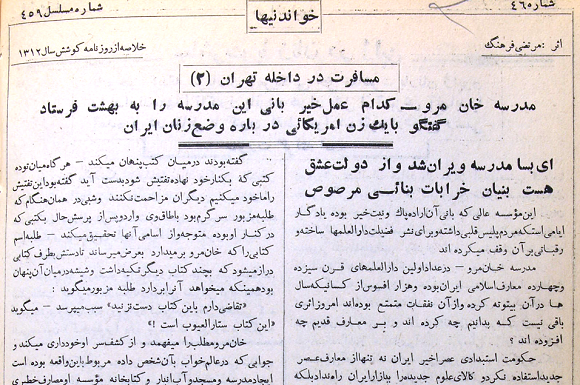 شماره ۴۶
خواندنیها
شماره مسلسل ۴۵۹
اثر : مرتضی فرهنگ
خلاصه از روزنامه کوشش سال ۱۳۱۲
مسافرت در داخله تهران (۲)
مدرسه خان مرو — کدام عمل خیر بانی این مدرسه را به بهشت فرستاد
گفتگو با یك زن امریکائی در باره وضع زنان ایران
ای بسا مدرسه ویران شد و از دولت عشق
هست بنیان خرابات بنائی مرصوص
این مؤسسه عالی که بانی آن اراده پاك و نیت خیر بوده یادگار
ایامی استکه مردم پلیس قلبی داشته و برای نشر فضیلت دارالعلمها ساخته و
رقباتی بر آن وقف میکرده اند
مدرسه خان مرو — در عداد اولین دارالعلمهای قرن سیزده
وچهارده معارف اسلامی ایران بوده و هزار افسوس از کسانیکه سال
ها در آن بیتوته کرده و از آن نفقات متمتع بوده اند امروز اثری
باقی نیست که بدانیم چه کرده اند و بر معارف قدیم چه
افزوده اند ؟
حکومت استبدادی عصر اخیر ایران نه تنها از معارف عصر
جدید استفاده نکرد و کالای علوم جدیده را ببازار ایران راه نداد بلکه
گفته بودند در میان کتب پنهان میکند — هر گاه میان توده
کتبی که بکنار خود نهاده تفتیش شود بدست آید گفته بود این تفتیش
را ما خود میکنیم دیگران مزاحمت نکنند وشبی در همان هنگام که
طلبه مزبور سر گرم بود باطاق وی وارد و پس از پرسش حال بکتبی که
در کنار او بوده متوجه و از اسامی آنها تحقیق میکند — طلبه اسم
کتابی را که خان مرو برمیدارد بعرض میرساند تا دستش بطرف کتابی
دراز میشود که بچند کتاب دیگر تکیه داشت وشیشه در میان آن پنهان
بود همینکه میخواهد آنرا بردارد طلبه مزبور میگوید :
«تقاضی دارم باین کتاب دست نزنید» سبب میپرسد — میگوید
«این کتاب ستار العیوب است !»
خان مرو مطلب را میفهمد و از کشف سر او خودداری میکند و
جوابی که در عالم خواب بآن شخص داده مربوط باین واقعه بوده است
ایجاد مدرسه و مسجد و آب انبار و کتابخانه مؤسسه او معارف فطری